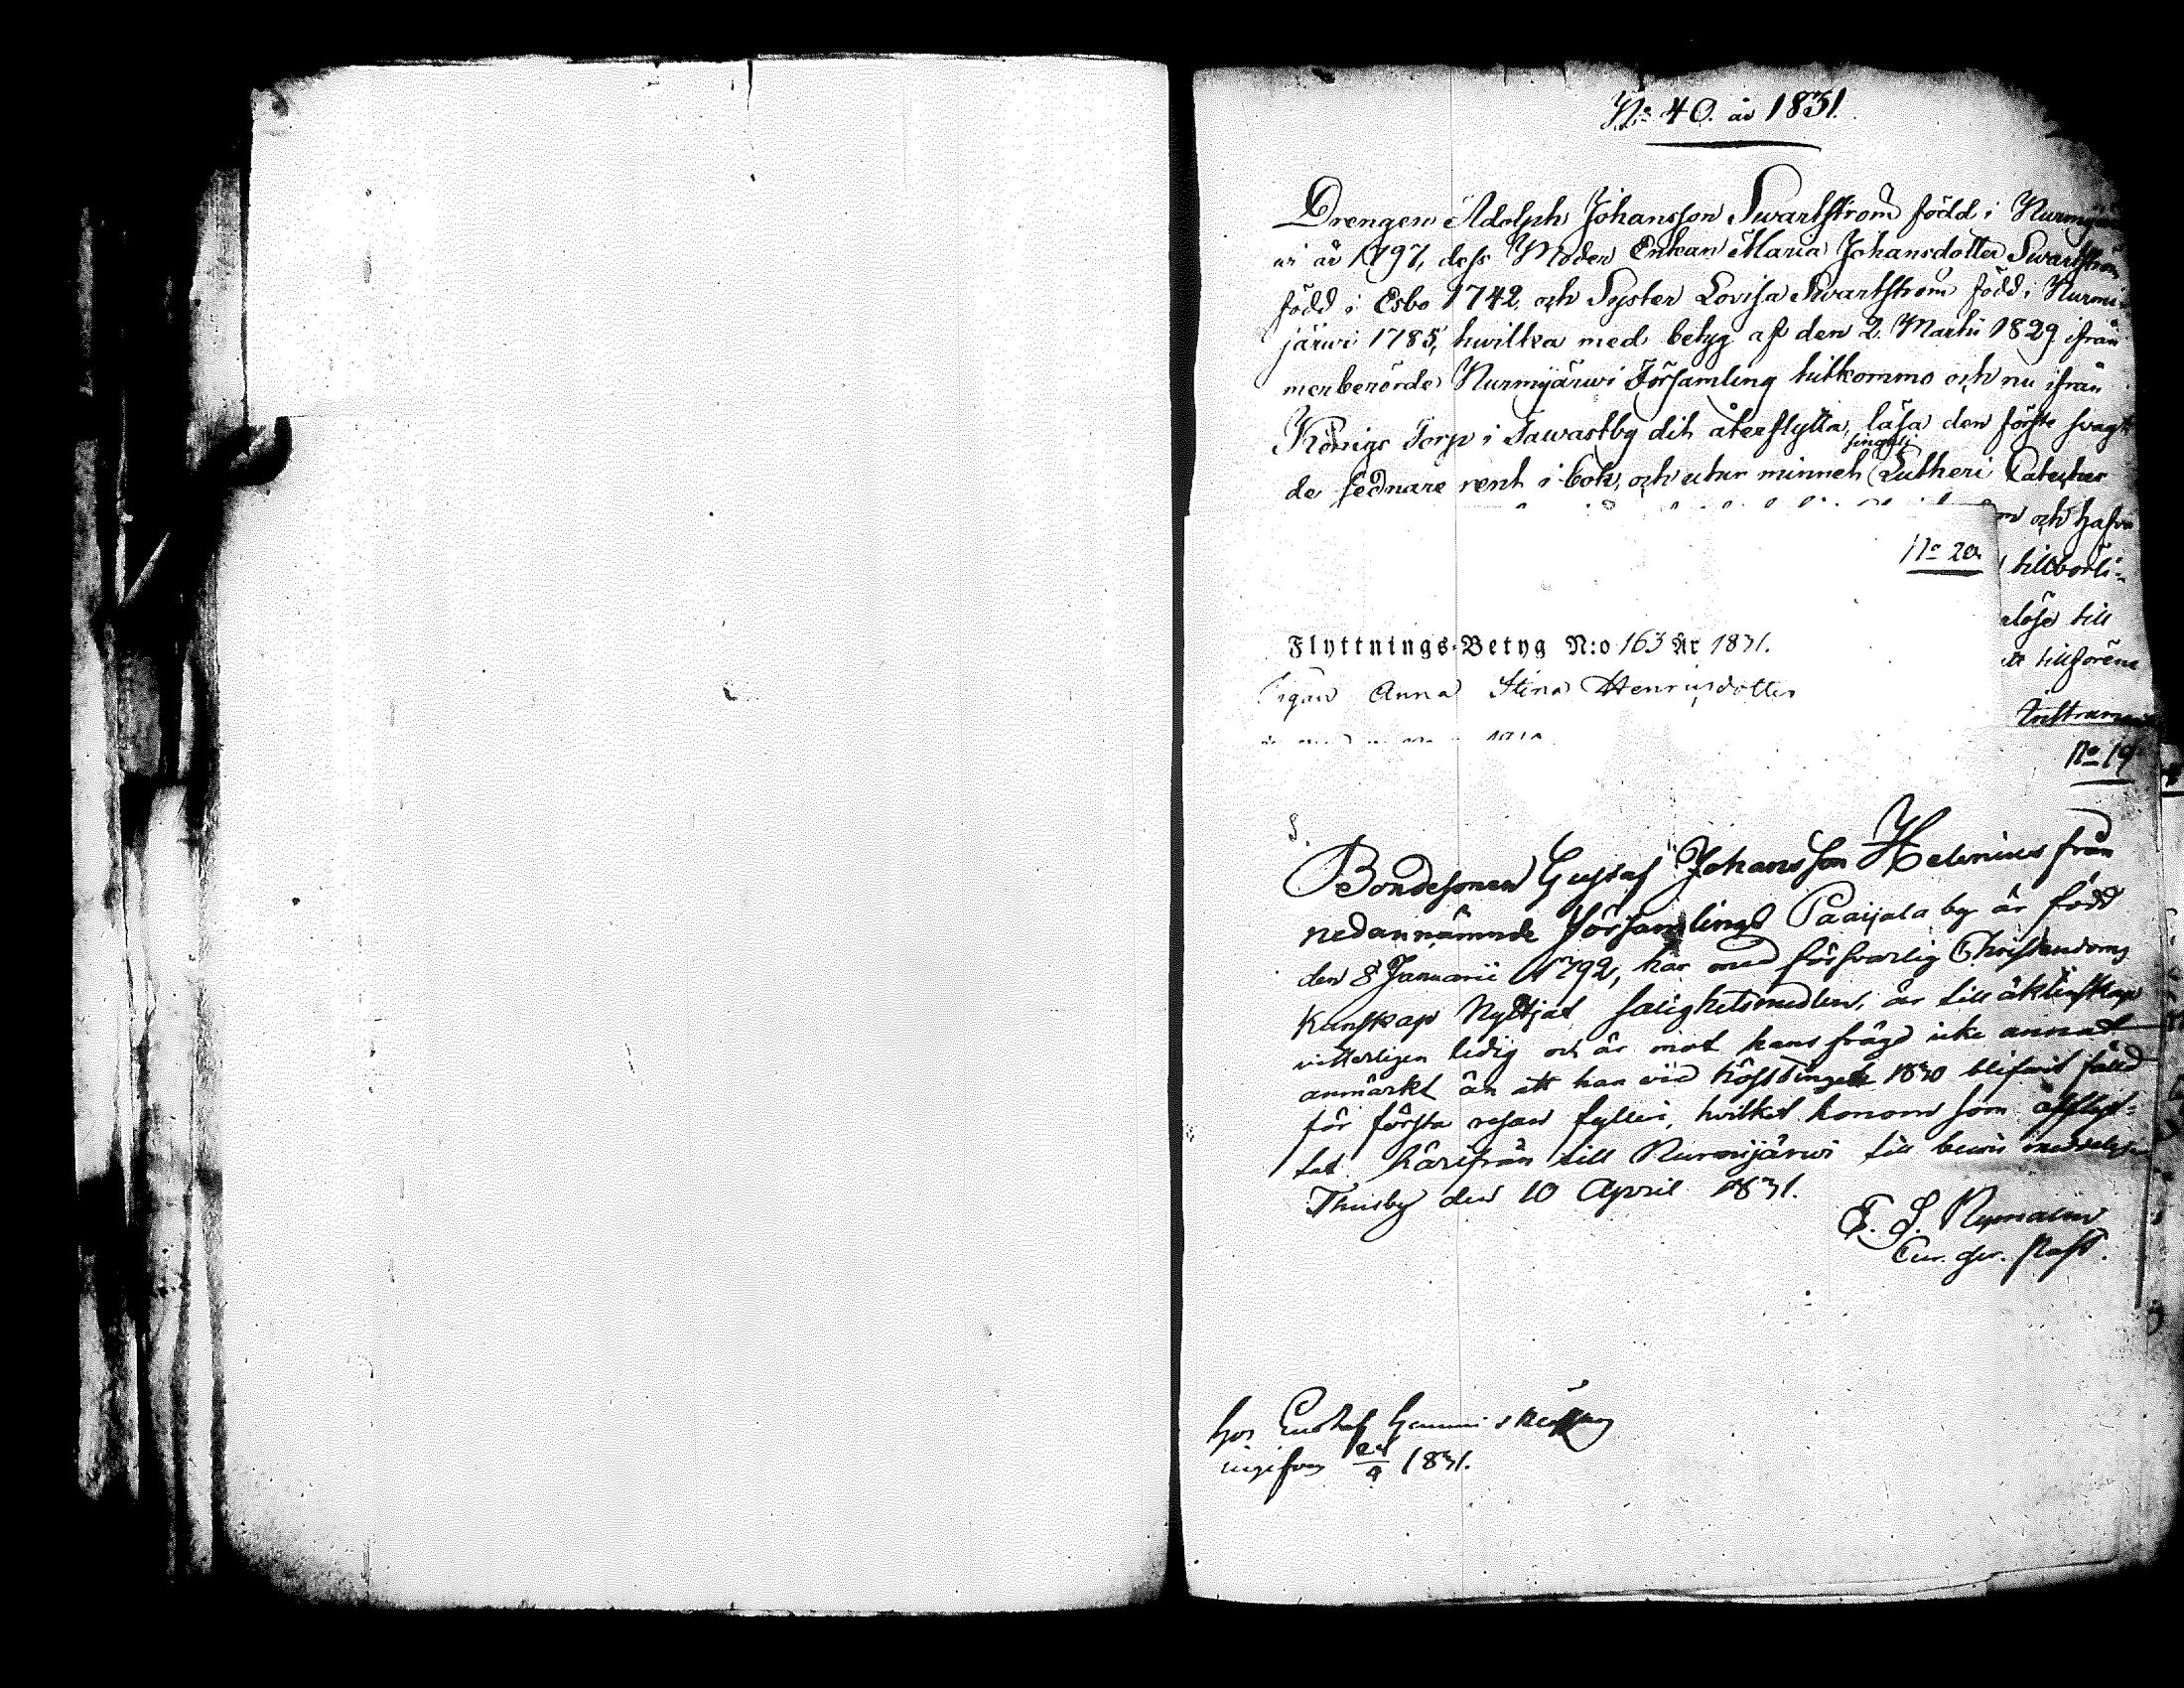 No 40. år 1831.
Drengen Adolph Johansson Swartström född i Nurmijär
wi år 1797, dess Moder Enkan Maria Johansdotter Swartström
född i Esbo 1742, och Syster Lovisa Swartström född i Nurmi-
järwi 1785, hwilka med betyg af den 2. Martii 1829 ifrån
merberörde Nurmijärwi Församling hitkommo och nu ifrån
Königs Torp i Tawastby dit återflytta, läsa den förste svagt
de sednare rent i bok, och utur minnet Lutheri Cateches
och hafva
No 20.
tillbörli-
till
Flyttnings-Betyg N:o 163 År 1831.
tillförene
Pigan Anna Stina Henricsdotter
No 19
Bondesonen Gustaf Johansson Helenius från
nedannämnde församlings Paaijala by är född
den 8 Januarii 1792, har med försvarlig Christendoms
Kunskap Nyttjat salighetsmedlen, är till äktenskap
vitterligen ledig och är mot hans frägd icke annat
anmärkt än att han vid hösttinget 1830 blifvit fälld
för första resan fylleri, hvilket honom som afflyt-
tat härifrån till Nurmijärwi till bewis meddelas.
Thusby den 10 April 1831.
E. S. Nymalm
hos Gustaf
1831.